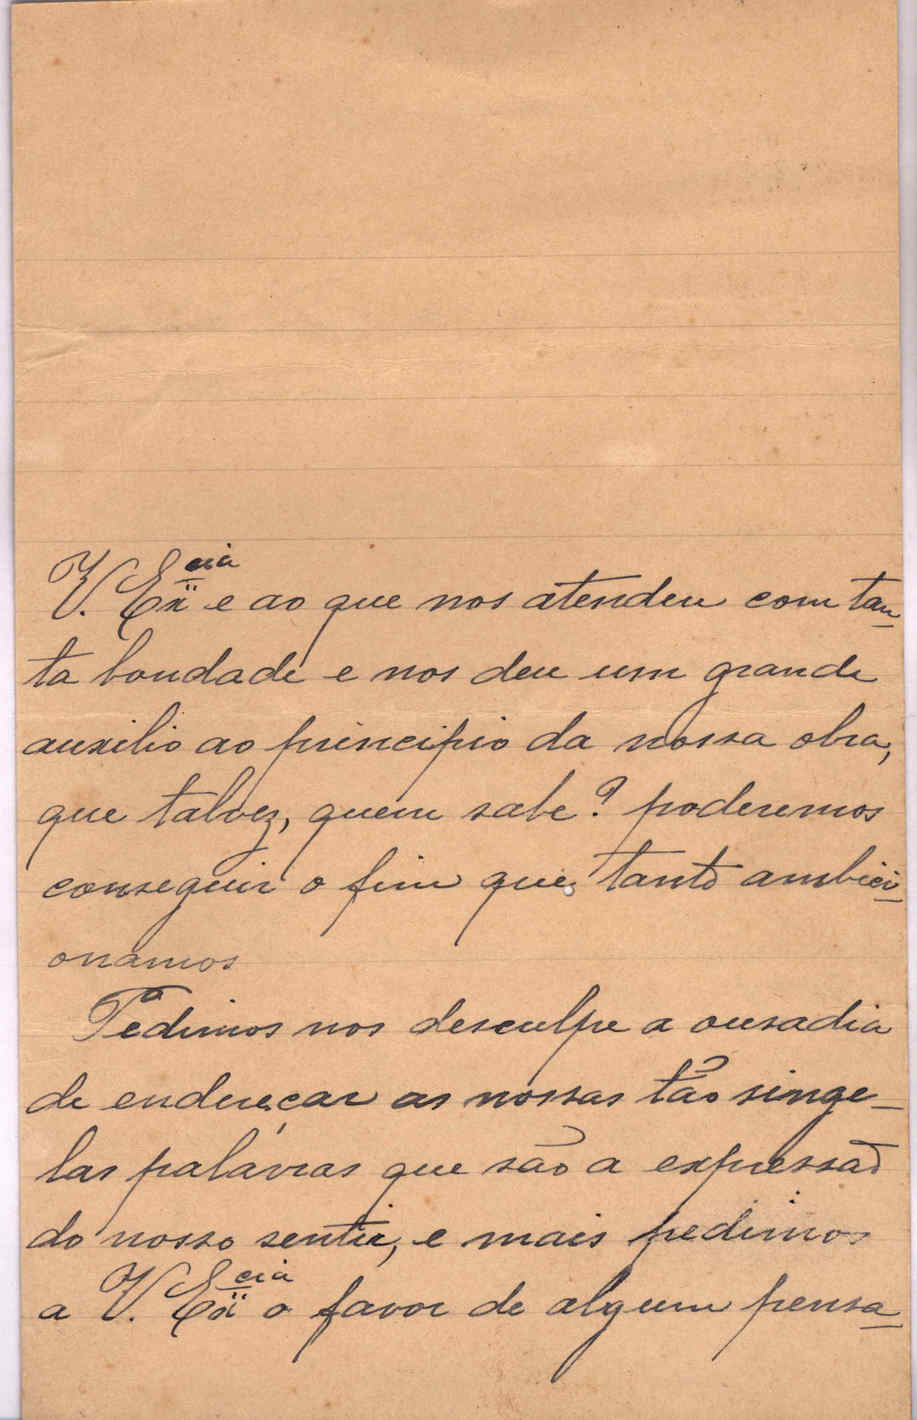 V. Ex.cia e ao que nos atendeu com tan-
ta bondade e nos deu um grande
auxilio ao principio da nossa obra,
que talvez, quem sabe? poderemos
conseguir o fim que tanto ambici-
onamos
Pedimos nos desculpe a ousadia
de endereçar as nossas tão singe-
las palávras que são a expressão
do nosso sentir, e mais pedimos
a V. Ex.cia o favor de algum pensa-